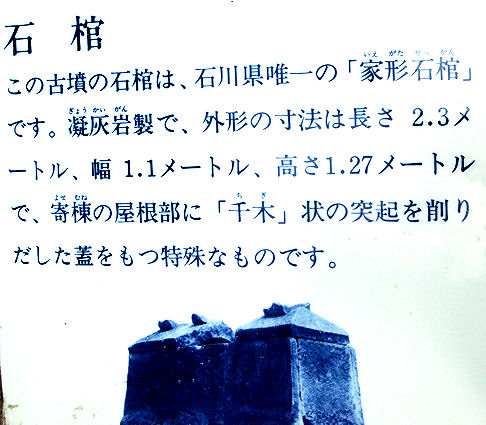 石棺
この古墳の石棺は、石川県唯一の「家形石棺」
です。凝灰岩製で、外形の寸法は長さ 2.3メ
ートル、幅 1.1メートル、高さ1.27メートル
で、寄棟の屋根部に「千木」状の突起を削り
だした蓋をもつ特殊なものです。